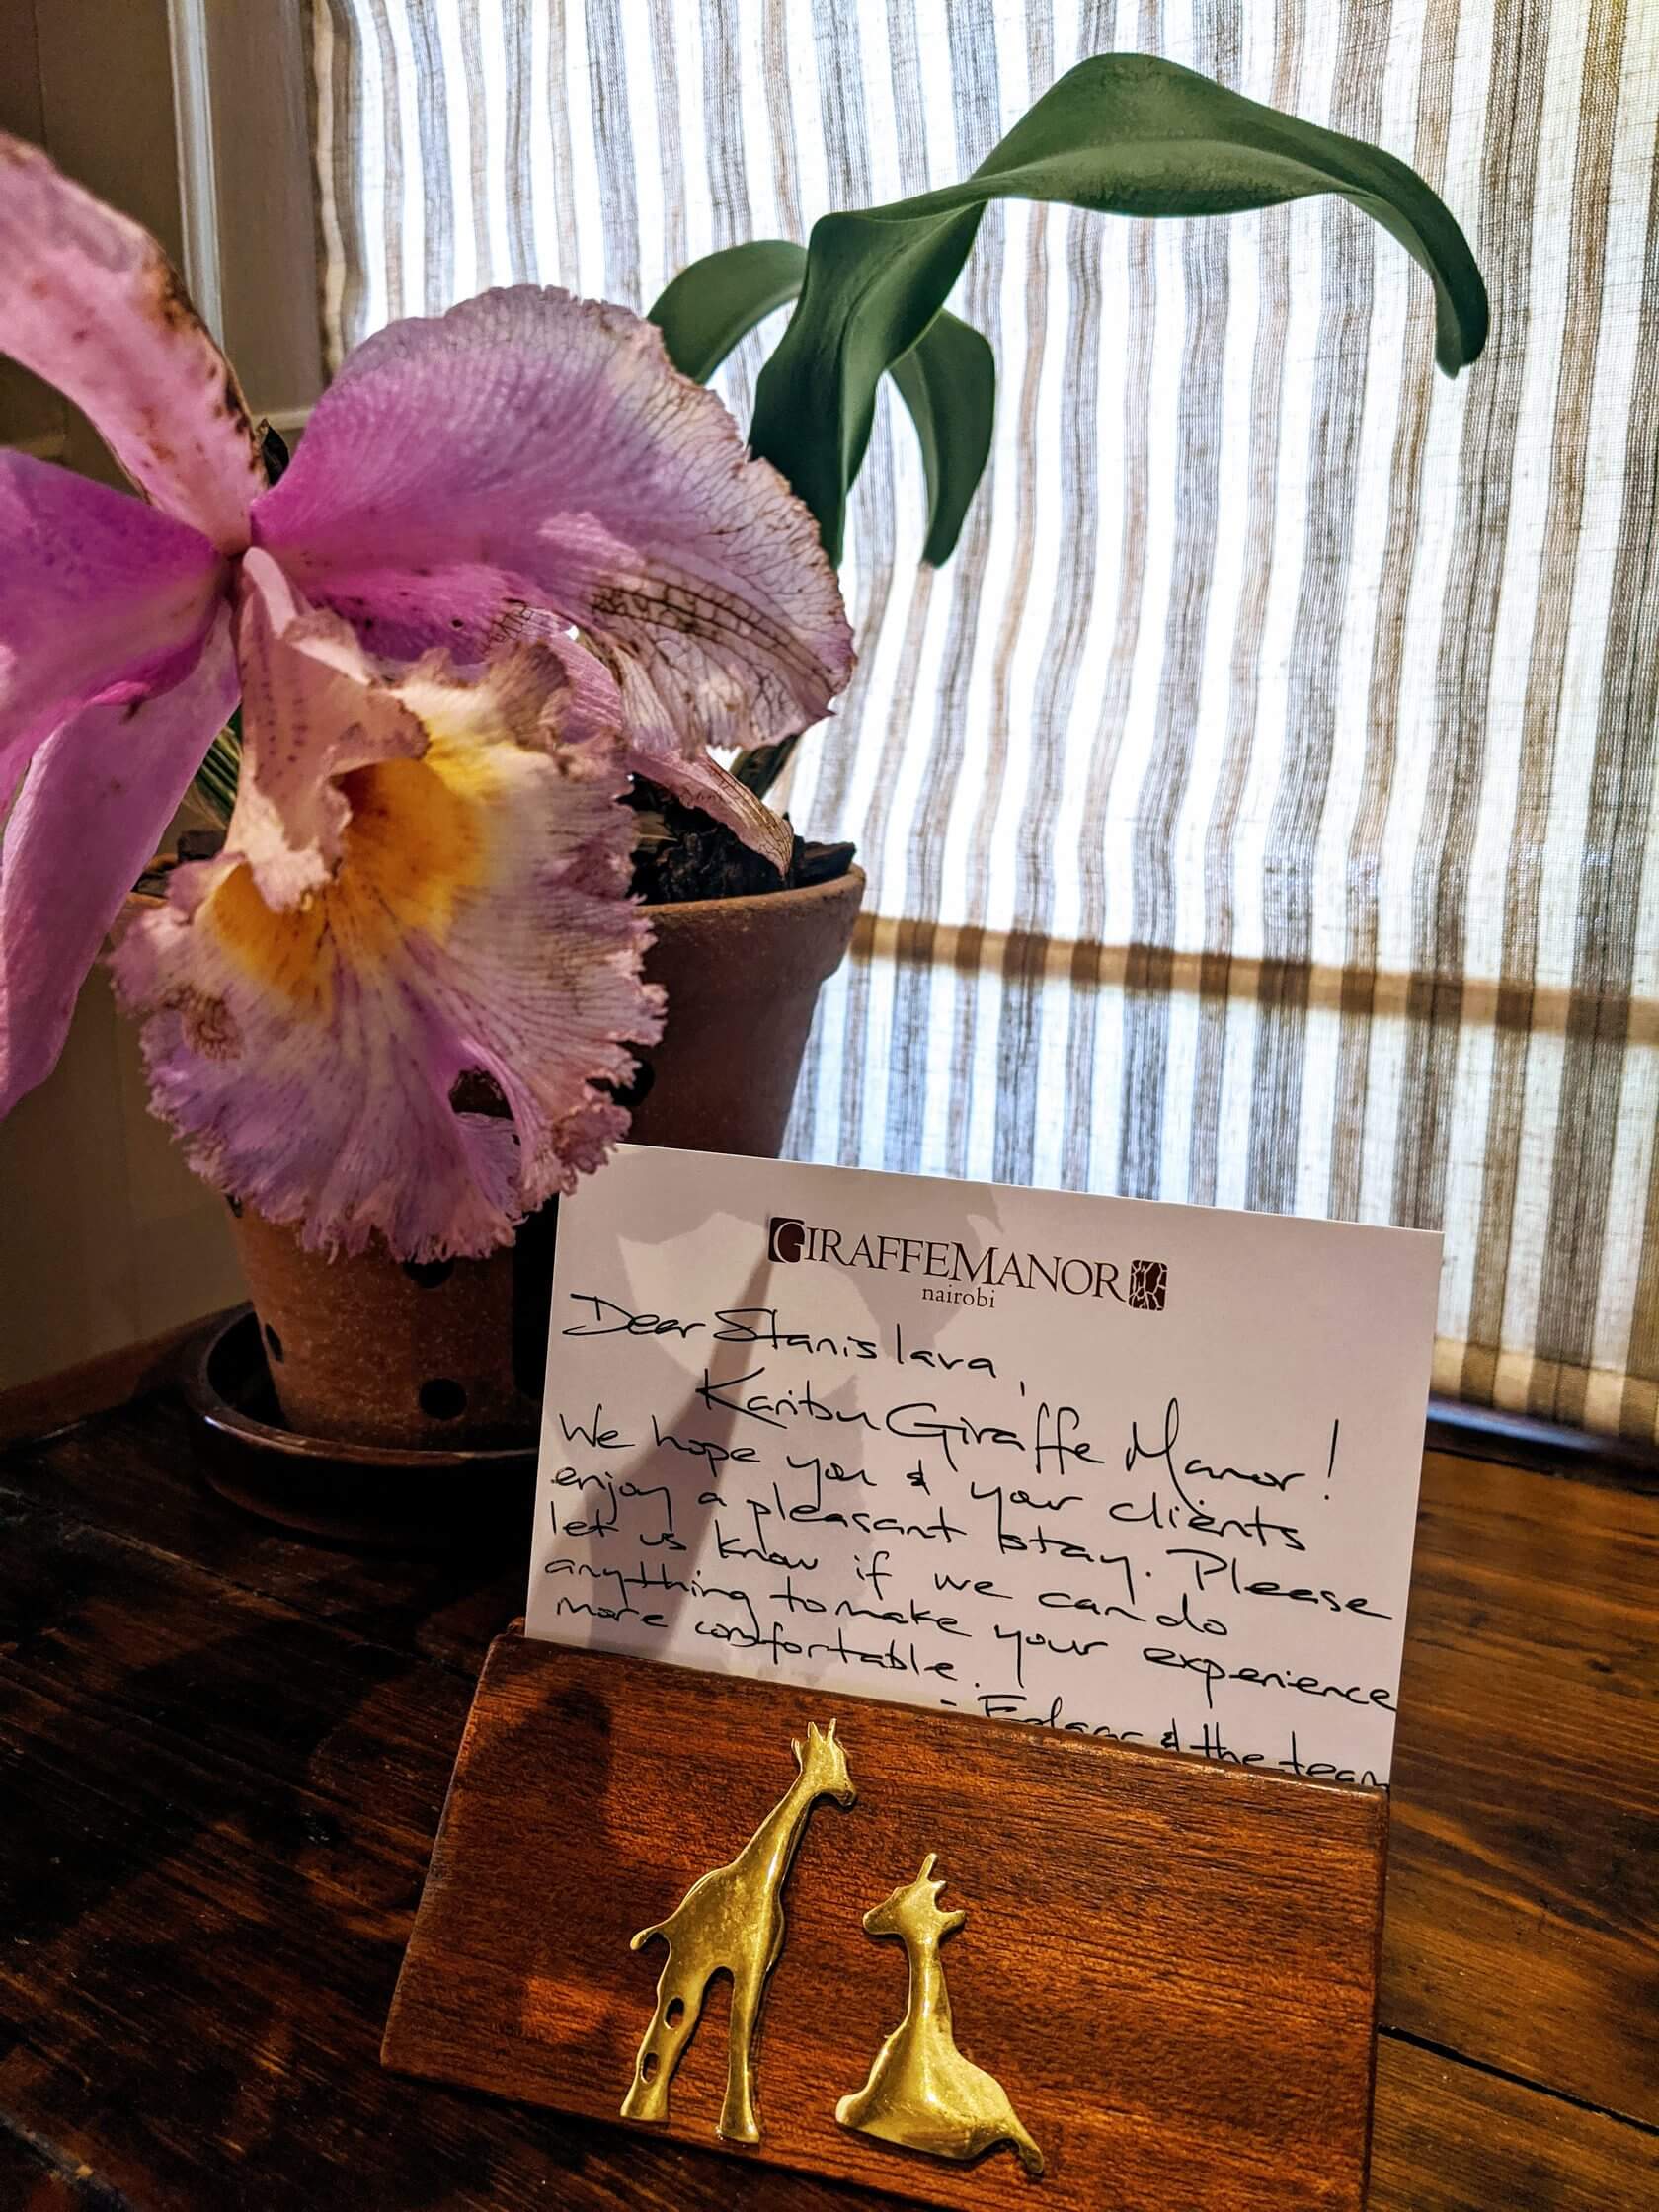 GIRAFFEMANOR
nairobi
Dear Stanislava,
Karibu Giraffe Manor!
We hope you & your clients
enjoy a pleasant stay. Please
let us know if we can do
anything to make your experience
more comfortable.
- & the team